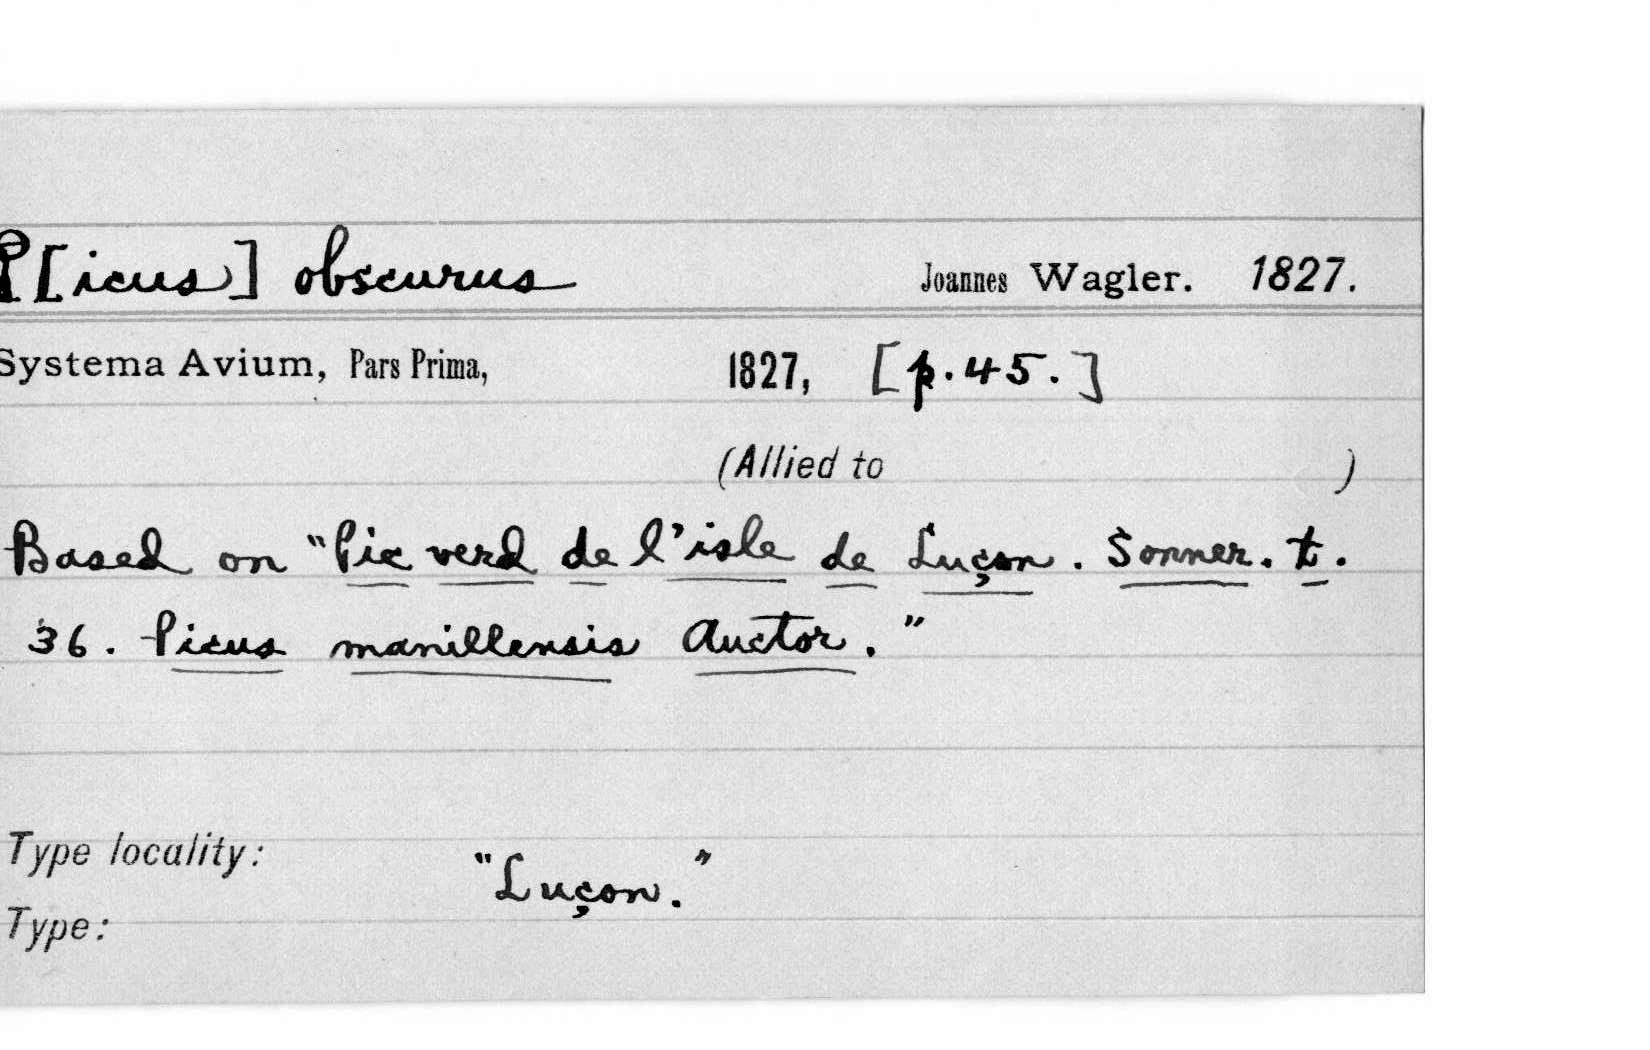 P[icus] obscurus Joannes Wagler. 1827.
Systema Avium, Pars Prima, 1827, [p. 45.]
(Allied to )
Based on "Pic verd de l'isle de Luçon. Sonner. t.
36. Picus manillensis Auctor."
Type locality: "Luçon."
Type: